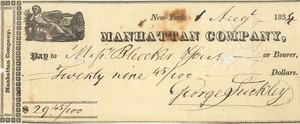 New-York, 1 Augt 1834
MANHATTAN COMPANY,
Pay to Messrs Bleecker & Sons or Bearer,
Twenty nine 45/100 Dollars.
$ 29 45/100
George Suckley
Manhattan Company.